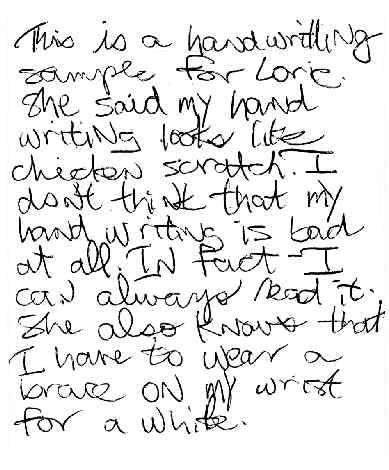 This is a handwritting
sample for Lorie.
She said my hand
writing looks like
chicken scratch. I
don't think that my
hand writing is bad
at all. IN fact I
can always read it.
She also knows that
I have to wear a
brace ON my wrist
for a while.